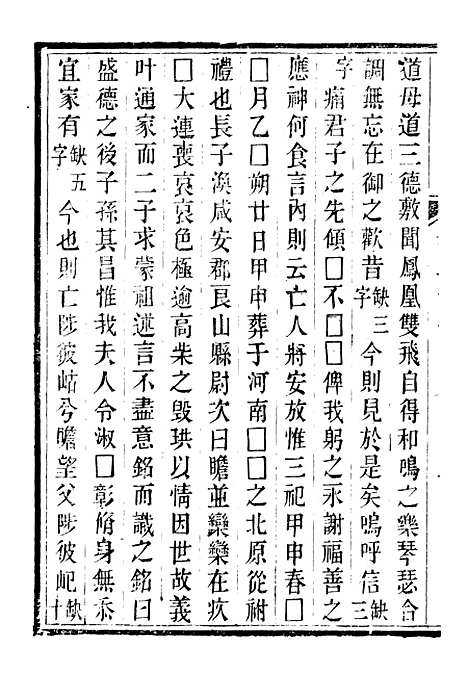 道母道三德敷聞鳳凰雙飛自得和鳴之樂琴瑟合
調無忘在御之歡昔缺三字今則見於是矣嗚呼信缺三
字痛君子之先傾□不□□俾我躬之永謝福善之
應神何食言內則云亡人將安放惟三祀甲申春□
□月乙□朔廿日甲申葬于河南□□之北原從祔
禮也長子渙咸安郡良山縣尉次曰瞻並欒欒在疚
□大連喪哀哀色極逾高柴之毀珙以情因世故義
叶通家而二子求蒙祖述言不盡意銘而識之銘曰
盛德之後子孫其昌惟我夫人令淑□彰脩身無忝
宜家有缺五字今也則亡陟彼岵兮瞻望父陟彼屺缺十